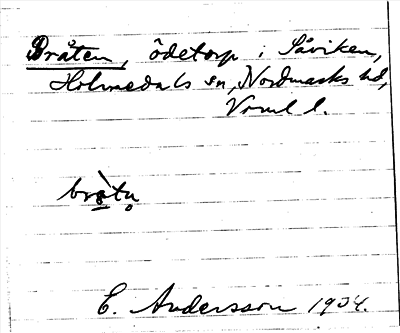 Bråten, ödetorp i Såviken,
Holmedals sn, Nordmarks hd,
Vrml l.
bròtn̥
E. Andersson 1934.